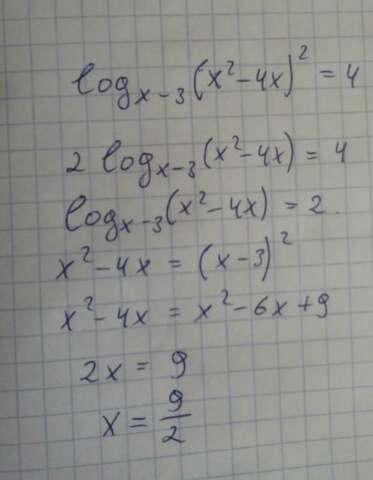 log_{x-3}(x²-4x)² = 4
2 log_{x-3}(x²-4x) = 4
log_{x-3}(x²-4x) = 2.
x²-4x = (x-3)²
x²-4x = x²-6x+9
2x = 9
x = 9/2